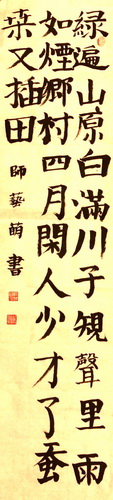 綠遍山原白滿川子䂓聲里雨
如煙鄉村四月閑人少才了蚕
桒又插田
師藝萌書